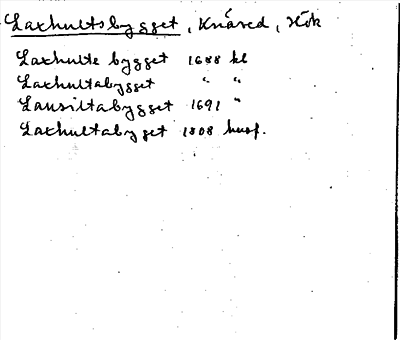 Laxhultsbygget, Knäred, Hök
Laxhulte bygget 1688 kl
Laxhultabygget " "
Laxsiltabygget 1691 "
Laxhultabygget 1808 husf.